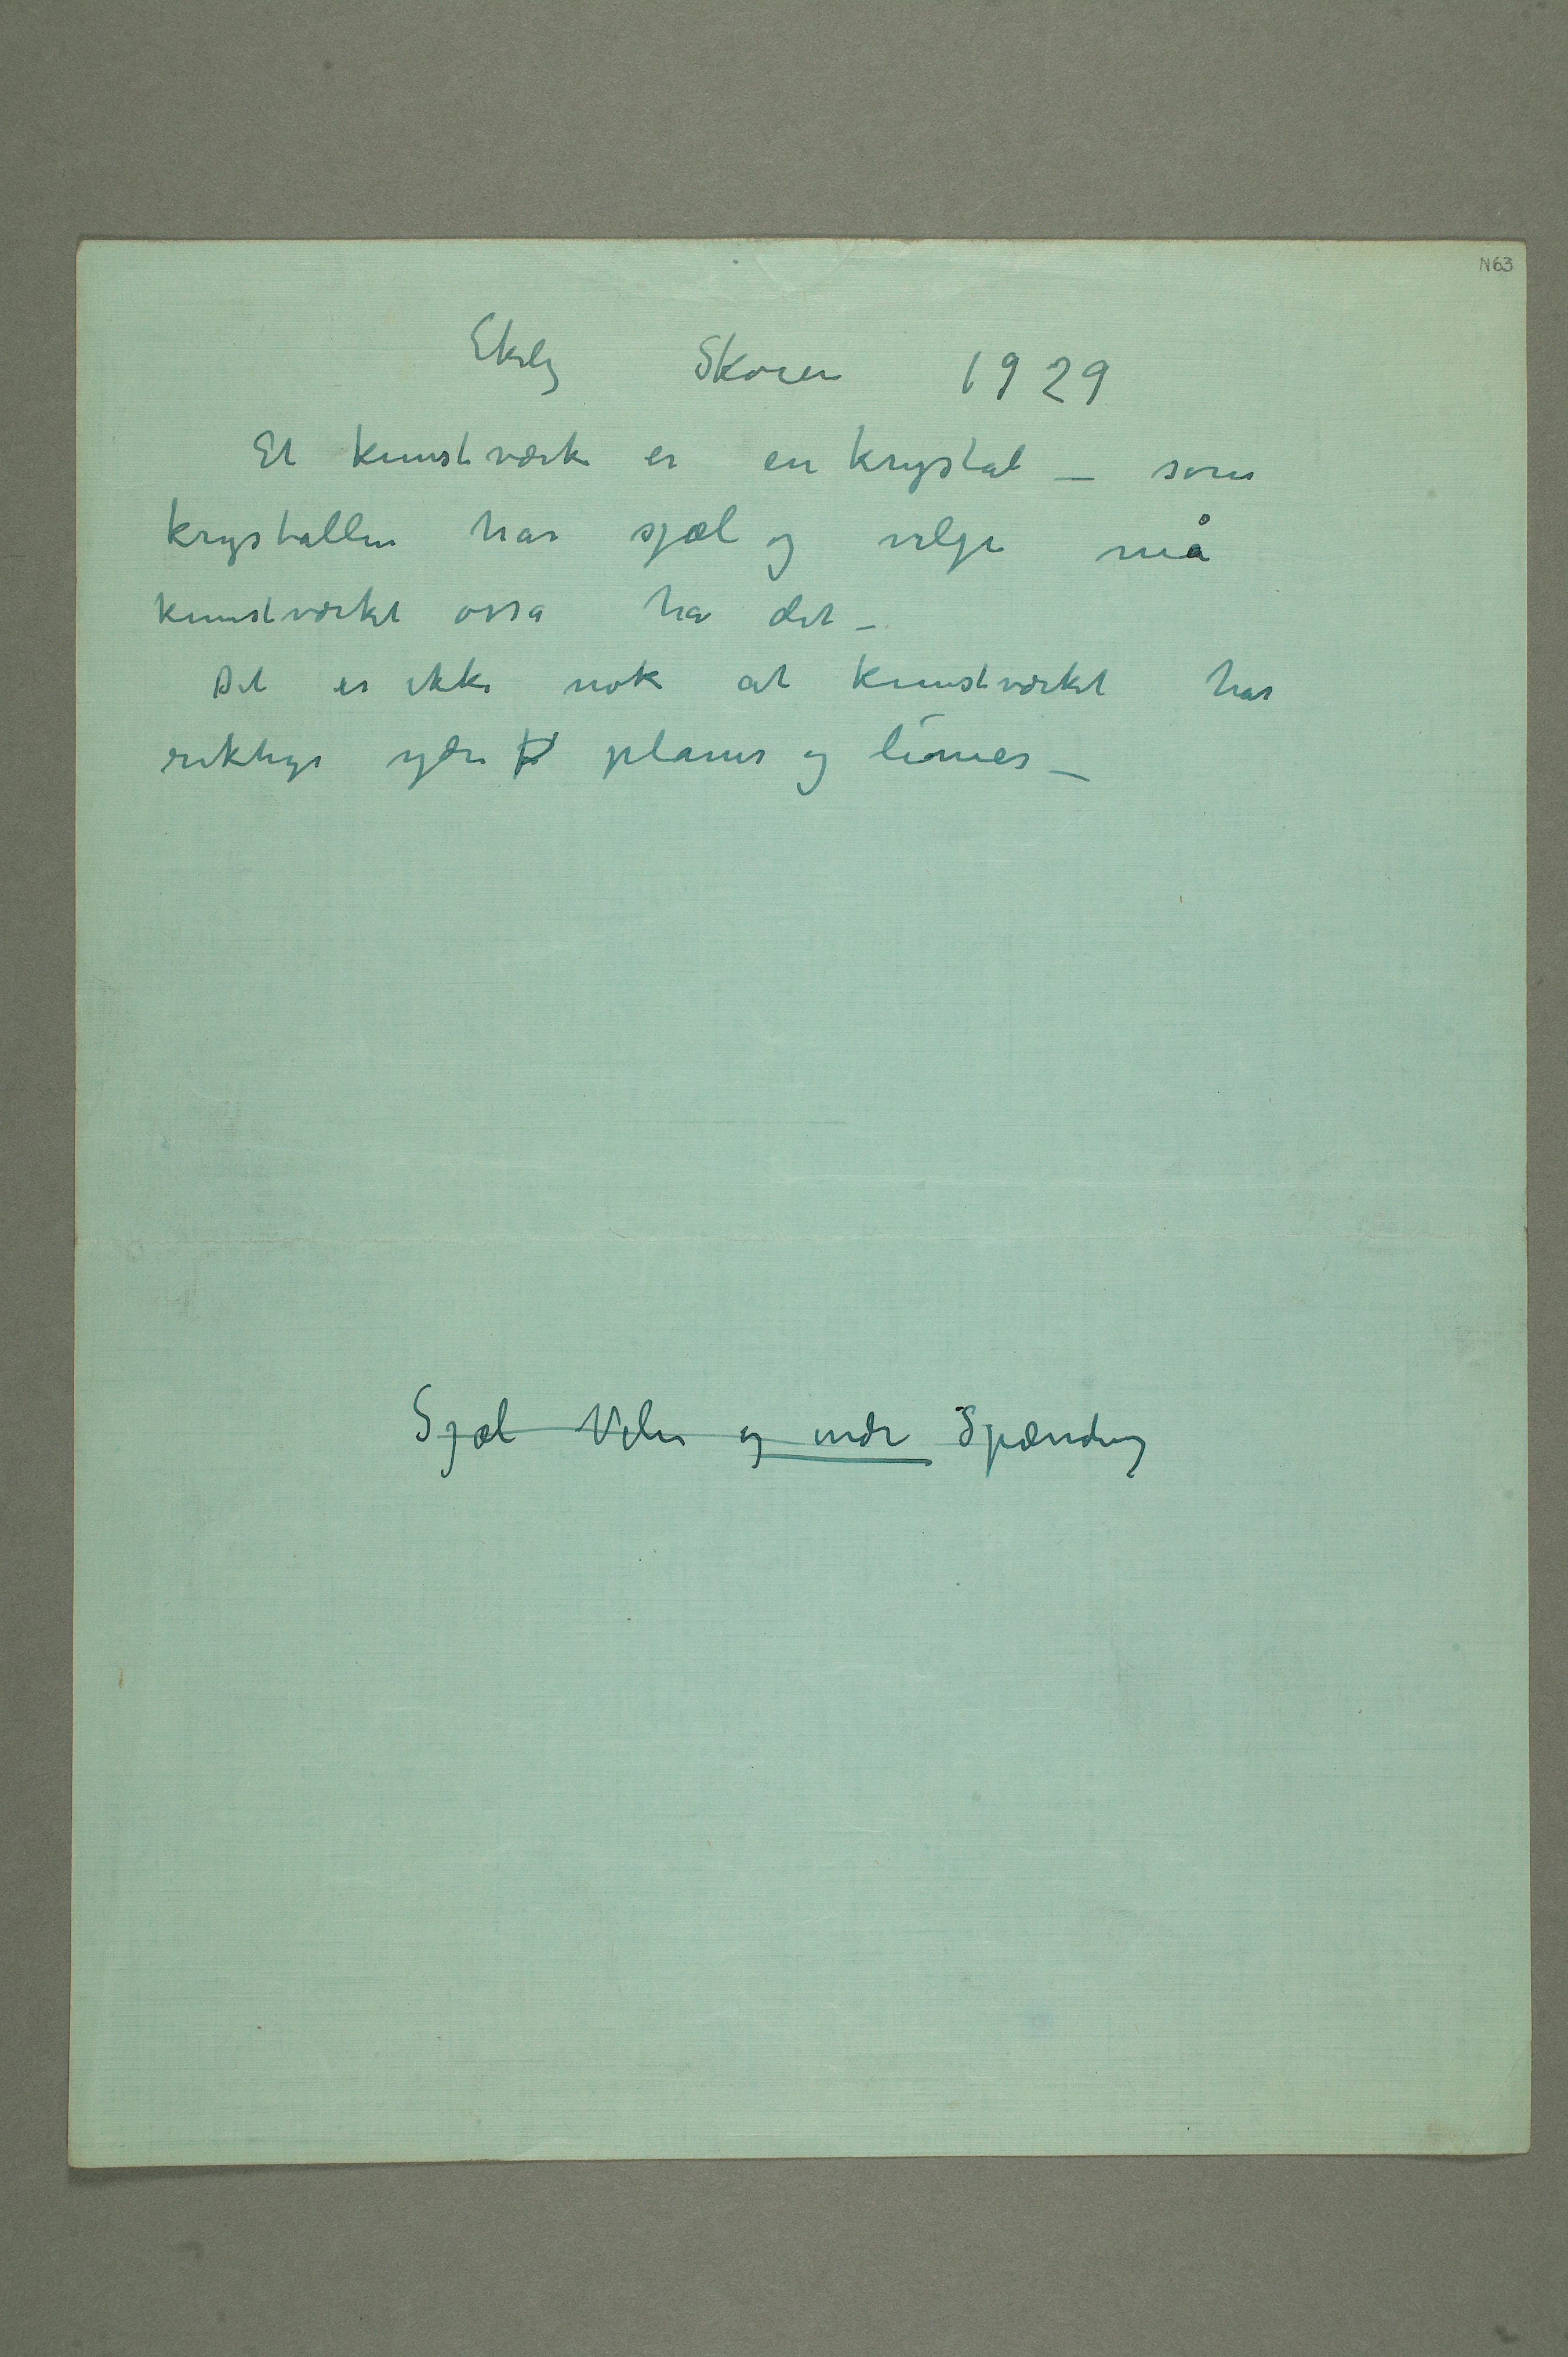 N63
Ekely Skøien 1929
Et kunstværk er en krystal – som
krystallen har sjæl og vilje må
kunstværket osså ha det –
Det er ikke nok at kunstværket har
riktige ydre planer og linier –
Sjæl Vilie og indre Spænding